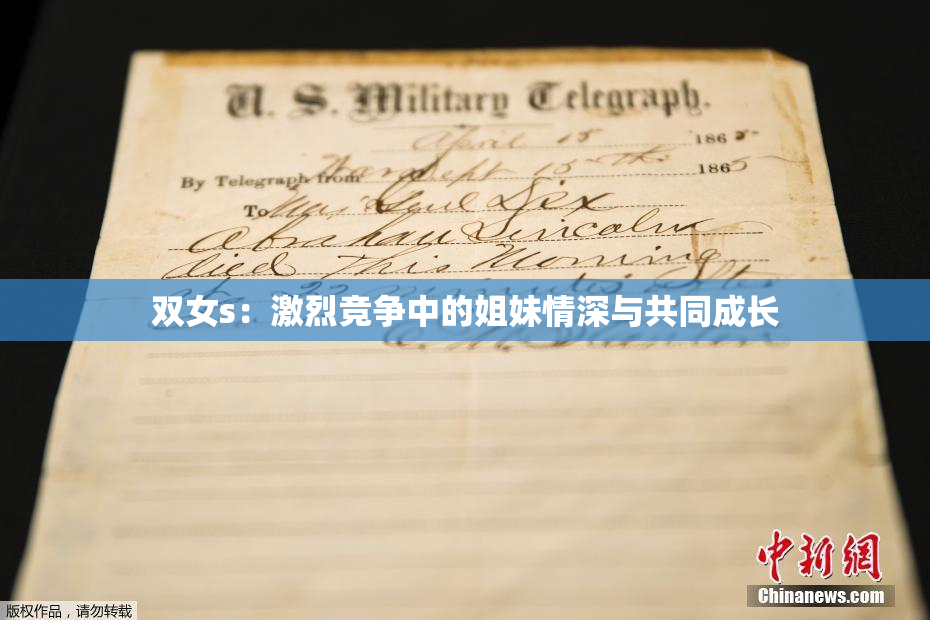 U. S. Military Telegraph.
April 15 1865
By Telegraph from War Dept 15th 1865
To Maj Genl Dix
Abraham Lincoln
died This Morning
22 minutes after
双女s：激烈竞争中的姐妹情深与共同成长
E. M. Stanton
中新網
Chinanews.com
版权作品，请勿转载